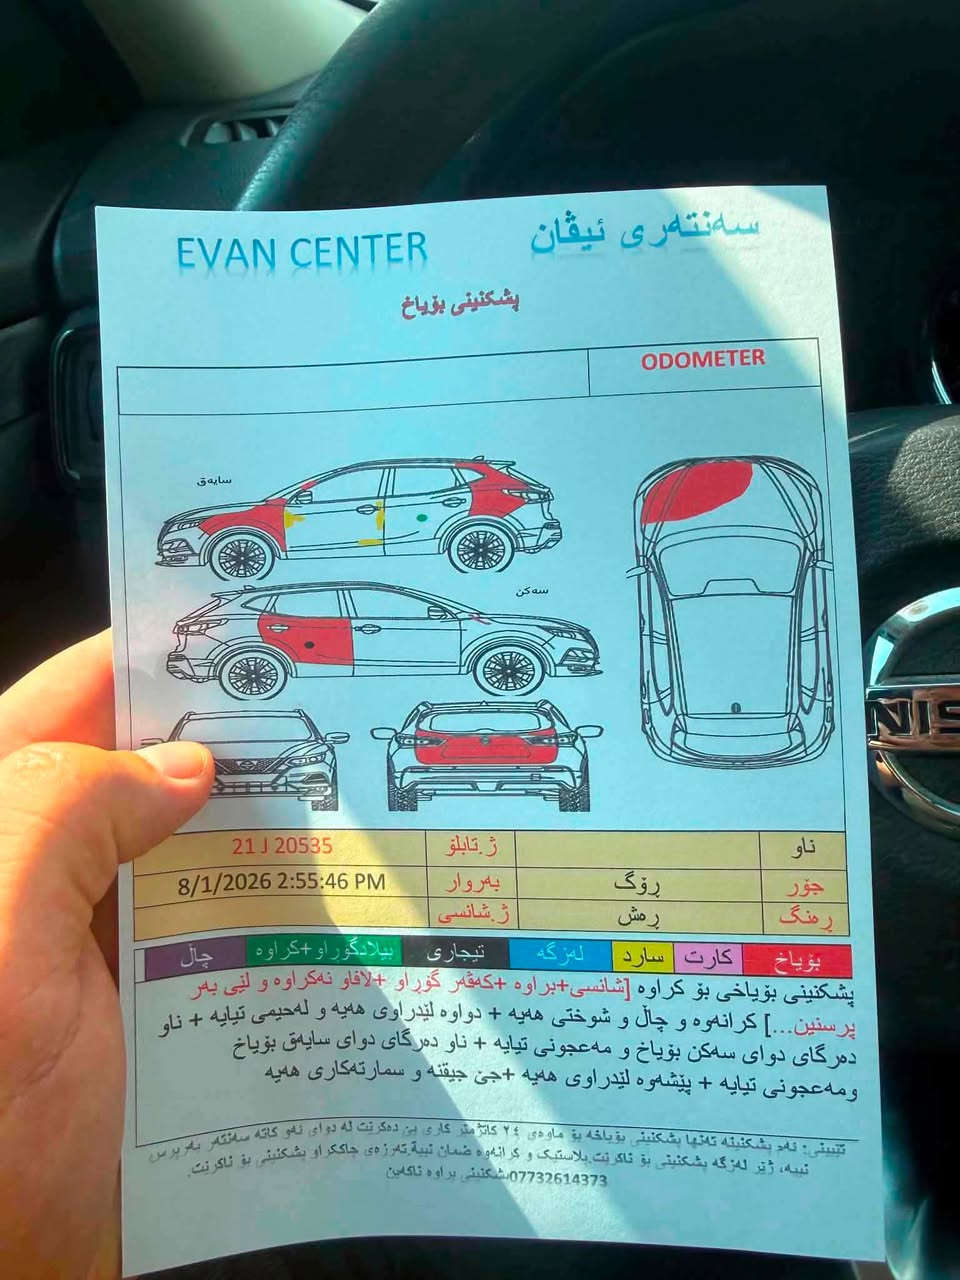 EVAN CENTER سەنتەری ئیڤان
پشکنینی بۆیاخ
ODOMETER
سایەق
سەکن
ناو ژ.تابلۆ 21 J 20535
جۆر ڕۆگ بەروار 8/1/2026 2:55:46 PM
ڕەنگ ڕەش ژ.شانسی
بۆیاخ کارت سارد لەزگە تیجاری بیلادگۆراو+کراوە چاڵ
پشکنینی بۆیاخی بۆ کراوە [شانسی+براوە +کەڤەر گۆراو +لافاو نەکراوە و لێی بەر
پرسنین...] کرانەوە و چاڵ و شوختی هەیە + دواوە لێدراوی هەیە و لەحیمی تیایە + ناو
دەرگای دوای سەکن بۆیاخ و مەعجونی تیایە + ناو دەرگای دوای سایەق بۆیاخ
ومەعجونی تیایە + پێشەوە لێدراوی هەیە +جێ جیقنە و سمارتەکاری هەیە
تێبینی: ئەم پشکنینە تەنها پشکنینی بۆیاخە بۆ ماوەی ٢٤ کاتژمێر کاری پێ دەکرێت لە دوای ئەو کاتە سەنتەر بەرپرس
نییە، ژێر لەزگە پشکنینی بۆ ناکرێت.پلاستیک و کرانەوە ضمان نییە.تەرزەی چاککراو پشکنینی بۆ ناکرێت.
07732614373پشکنینی براوە ناکەین
NIS